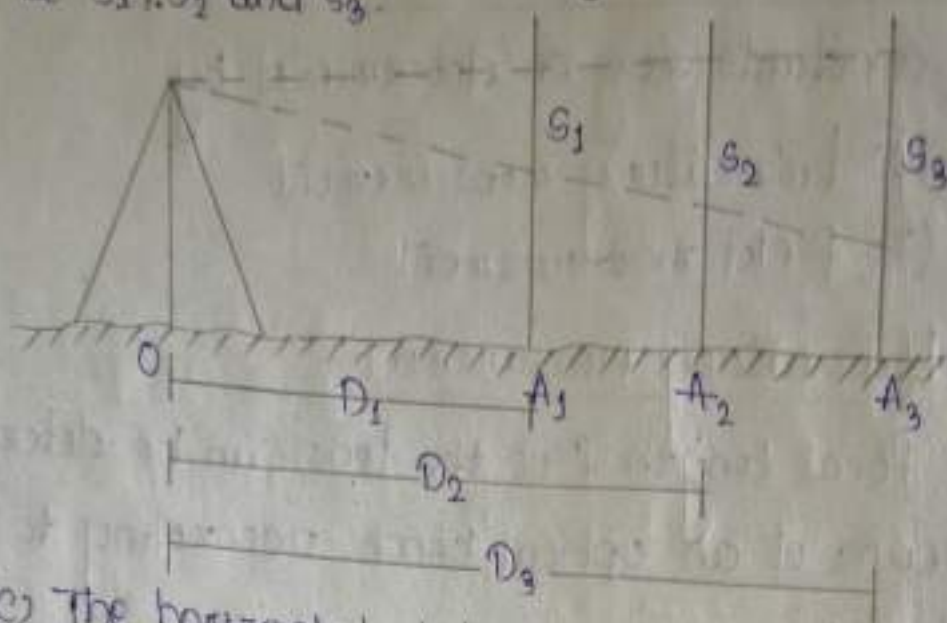 and S3.
S1
S2
S3
O
D1
A1
A2
A3
D2
D3
c) The